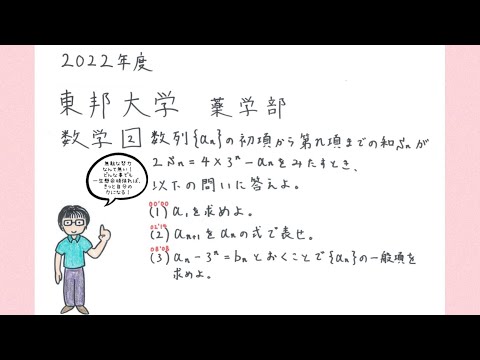 2022年度
東邦大学 薬学部
数学 2 数列{aₙ}の初項から第n項までの和Sₙが
2Sₙ=4×3ⁿ-aₙをみたすとき、
以下の問いに答えよ。
00'00
(1) a₁を求めよ。
02'19
(2) aₙ₊₁をaₙの式で表せ。
08'08
(3) aₙ-3ⁿ=bₙとおくことで{aₙ}の一般項を
求めよ。
無駄な努力
なんて無い!
どんな事でも
一生懸命頑張れば、
きっと自分の
力になる!